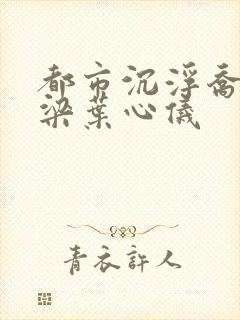 都市沉浮喬
梁葉心儀
青衣許人